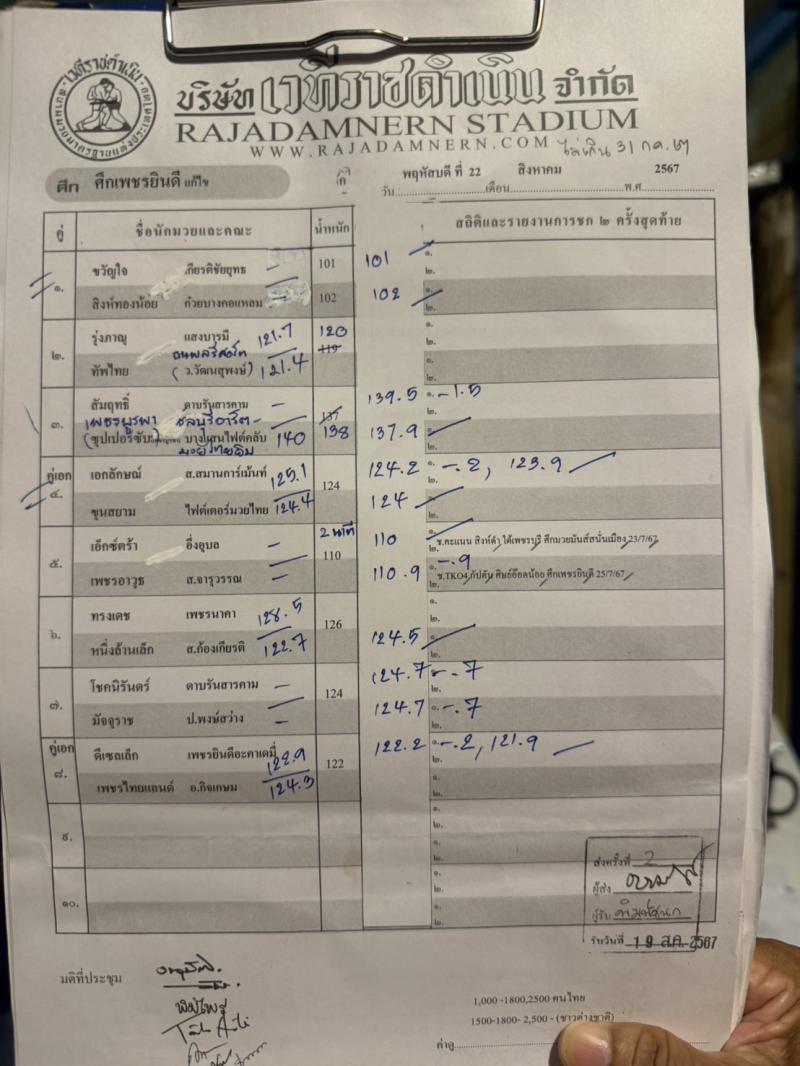 บริษัท เวทีราชดำเนิน จำกัด
RAJADAMNERN STADIUM
WWW.RAJADAMNERN.COM
ไม่เกิน 31 ก.ค. ๖๗
ศึก ศึกเพชรยินดี แก้ไข
วัน พฤหัสบดี ที่ 22 เดือน สิงหาคม พ.ศ. 2567
คู่ ชื่อนักมวยและคณะ น้ำหนัก สถิติและรายงานการชก ๒ ครั้งสุดท้าย
๑. ขวัญใจ เกียรติชัยยุทธ — 101 101 ๑.
๒.
สิงห์ทองน้อย ก๋วยบางคอแหลม — 102 102 ๑.
๒.
๒. รุ่งภาณุ แสงบารมี 121.7 120 ๑.
119 ๒.
ทัพไทย (ว.วัฒนสุพงษ์) 121.4 ๑.
๒.
๓. สัมฤทธิ์ ดาบรันสารคาม — 137 139.5 ๑. - 1.5
๒.
เพชรบูรพา ชลบุรีอาร์ต
(ซุปเปอร์ซับ บางแสนไฟต์คลับ 140 138 137.9 ๑.
๒.
คู่เอก ๔. เอกลักษณ์ ส.สมานการ์เม้นท์ 125.1 124 124.2 ๑. -.2, 123.9
๒.
ขุนสยาม ไฟต์เตอร์มวยไทย 124.4 124 ๑.
๒.
๕. เอ็กซ์ตร้า อึ่งอุบล — 2 นาที 110 110 ๑.
ช.คะแนน สิงห์ดำ ใต้เพชรบุรี ศึกมวยมันส์สนั่นเมือง 23/7/67
๒.
เพชรอาวุธ ส.จารุวรรณ — 110.9 ๑. -.9
ช.TKO4 กัปตัน ศิษย์อ๊อดน้อย ศึกเพชรยินดี 25/7/67
๒.
๖. ทรงเดช เพชรนาคา 128.5 126 ๑.
๒.
หนึ่งล้านเล็ก ส.ก้องเกียรติ 122.7 124.5 ๑.
๒.
๗. โชคนิรันดร์ ดาบรันสารคาม — 124 124.7 ๑. -.7
๒.
มัจจุราช ป.พงษ์สว่าง — 124.7 ๑. -.7
๒.
คู่เอก ๘. ดีเซลเล็ก เพชรยินดีอะคาเดมี่ 122.9 122 122.2 ๑. -.2, 121.9
๒.
เพชรไทยแลนด์ อ.กิจเกษม 124.3 ๑.
๒.
๙. ๑.
๒.
๑.
๒.
๑๐. ๑.
๒.
๑.
๒.
ส่งครั้งที่ 2
ผู้ส่ง
ผู้รับ พิมพ์ชนก
รับวันที่ 19 ส.ค. 2567
มติที่ประชุม
1,000 -1800,2500 คนไทย
1500-1800- 2,500 - (ชาวต่างชาติ)
ค่าดู